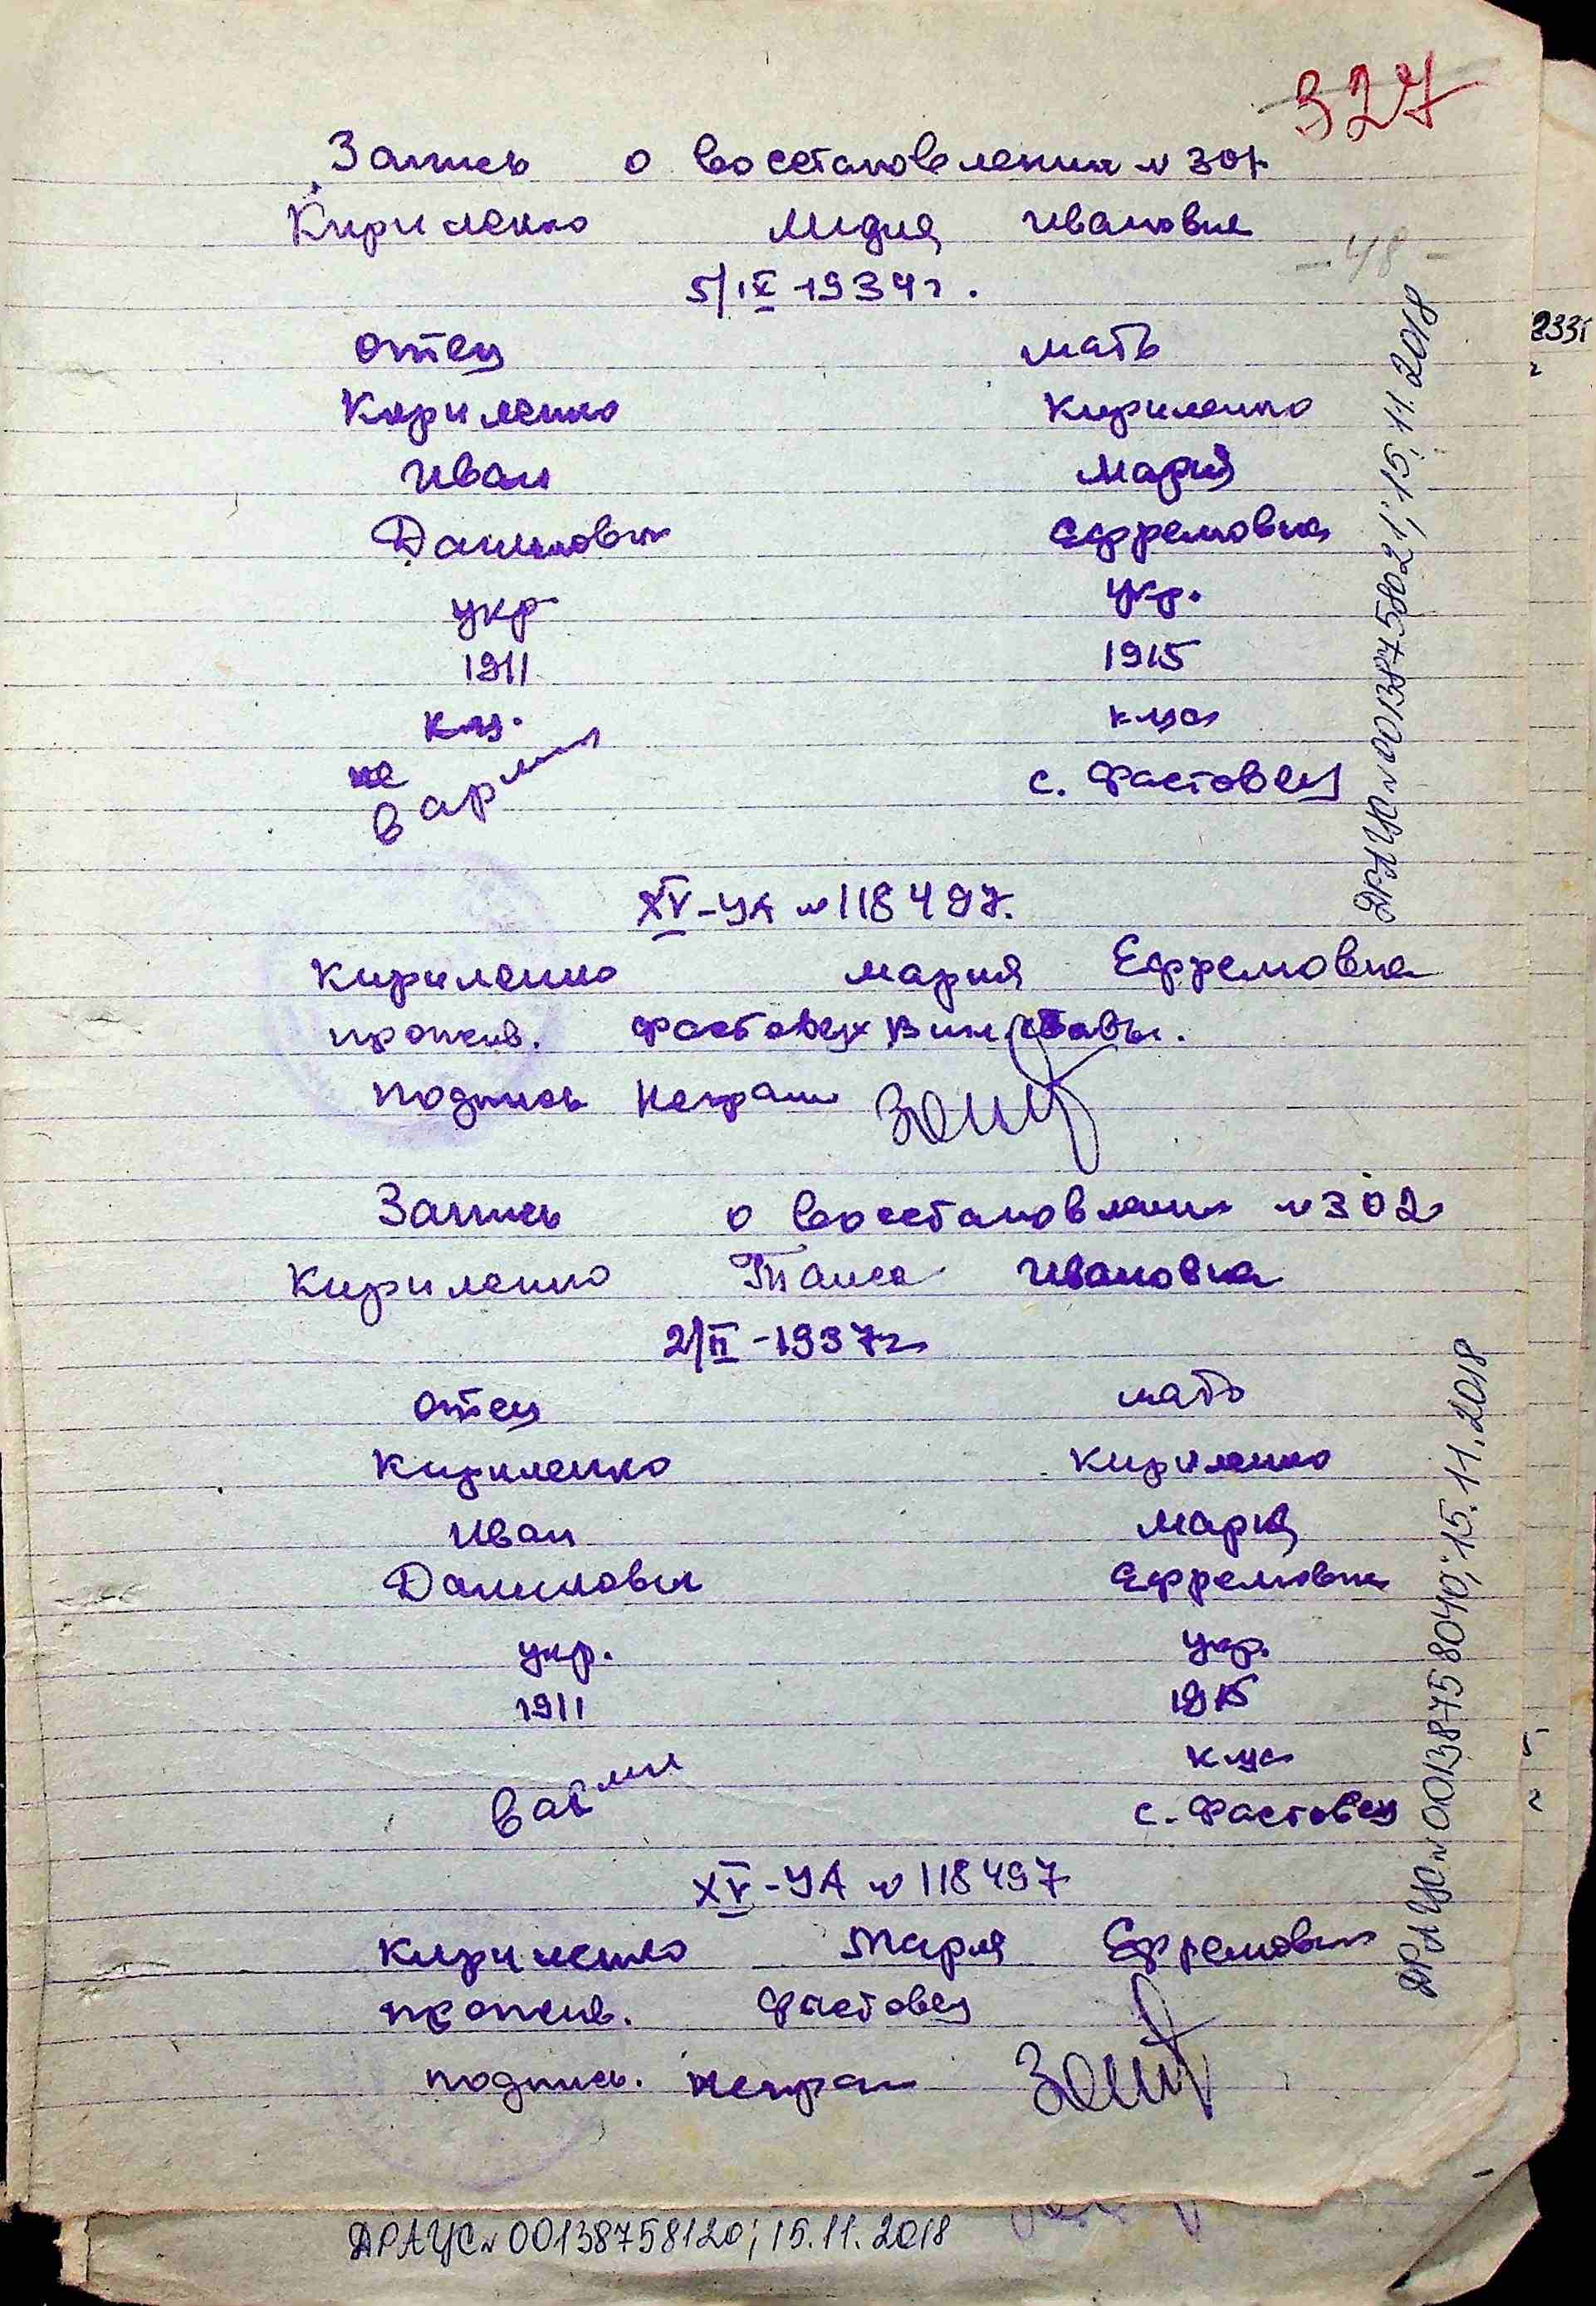 327
Запись о восстановлении № 301
Кириленко Лидия Ивановна
- 48 -
5/IX 1934 г.
отец мать
Кириленко Кириленко
Иван Мария
Данилович Ефремовна
укр укр.
1911 1915
к-ца
не в армии с. Фастовец
XV-УА № 118497.
Кириленко Мария Ефремовна
прожив. Фастовец
подпись Неграм
Запись о восстановлении № 302
Кириленко Таиса Ивановна
2/II - 1937 г
отец мать
Кириленко Кириленко
Иван Мария
Данилович Ефремовна
укр. укр.
1911 1915
к-ца
в армии с. Фастовец
XV-УА № 118497
Кириленко Мария Ефремовна
прожив. Фастовец
подпись. неграм
ДРАЦС № 00138758021; 15.11.2018
ДРАЦС № 00138758040; 15.11.2018
ДРАЦС № 00138758120; 15.11.2018